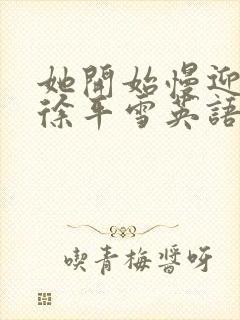 她開始慢迎
徐平雪英語
喫青梅醬呀